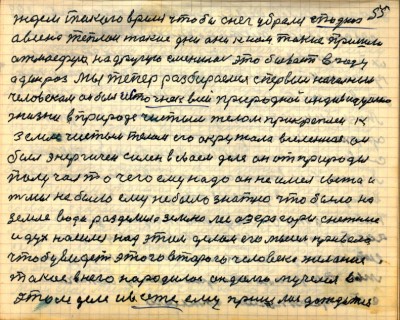 55
ждем такого время чтобы снег убрали сподноз
а вместо теплом такие дни они к нам также пришли
а на другую сменили это бывает в году
один раз мы теперь разбираемся спервым начальным
человеком он был источник всей природной индивидуально
жизни в природе чистым телом прикреплен к
земле чистым телом его окружала вселенная он
был энергичен силен в своем деле он от природы
получал то чего ему надо он не имел света и
тьмы не было ему не было знатно что было на
земле вода разделила землю моря озера горы снежные
и дух носился над этим делом его мысль привела
чтобы увидеть этого второго человека желание
такое в него народилось он долго мучился в
этом деле но все же ему пришлось дождаться